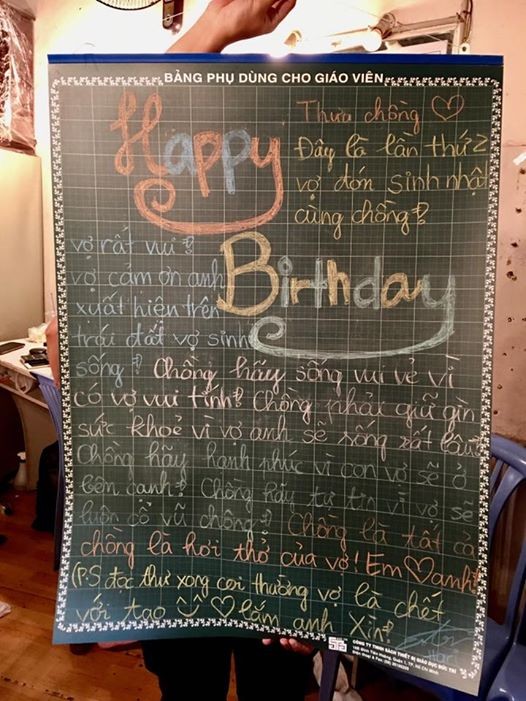 BẢNG PHỤ DÙNG CHO GIÁO VIÊN
Happy
Thưa chồng
Đây là lần thứ 2
vợ đón sinh nhật
cùng chồng!
Birthday
vợ rất vui!
vợ cảm ơn anh
xuất hiện trên
trái đất vợ sinh
sống! Chồng hãy sống vui vẻ vì
có vợ vui tính! Chồng phải giữ gìn
sức khoẻ vì vợ anh sẽ sống rất lâu!
Chồng hãy hạnh phúc vì con vợ sẽ ở
bên cạnh! Chồng hãy tự tin vì vợ sẽ
luôn cổ vũ chồng! Chồng là tất cả
chồng là hơi thở của vợ! Em anh!
(P.S đọc thư xong coi thường vợ là chết
với tao lắm anh Xìn!
CÔNG TY TNHH SÁCH THIẾT BỊ GIÁO DỤC ĐỨC TRÍ